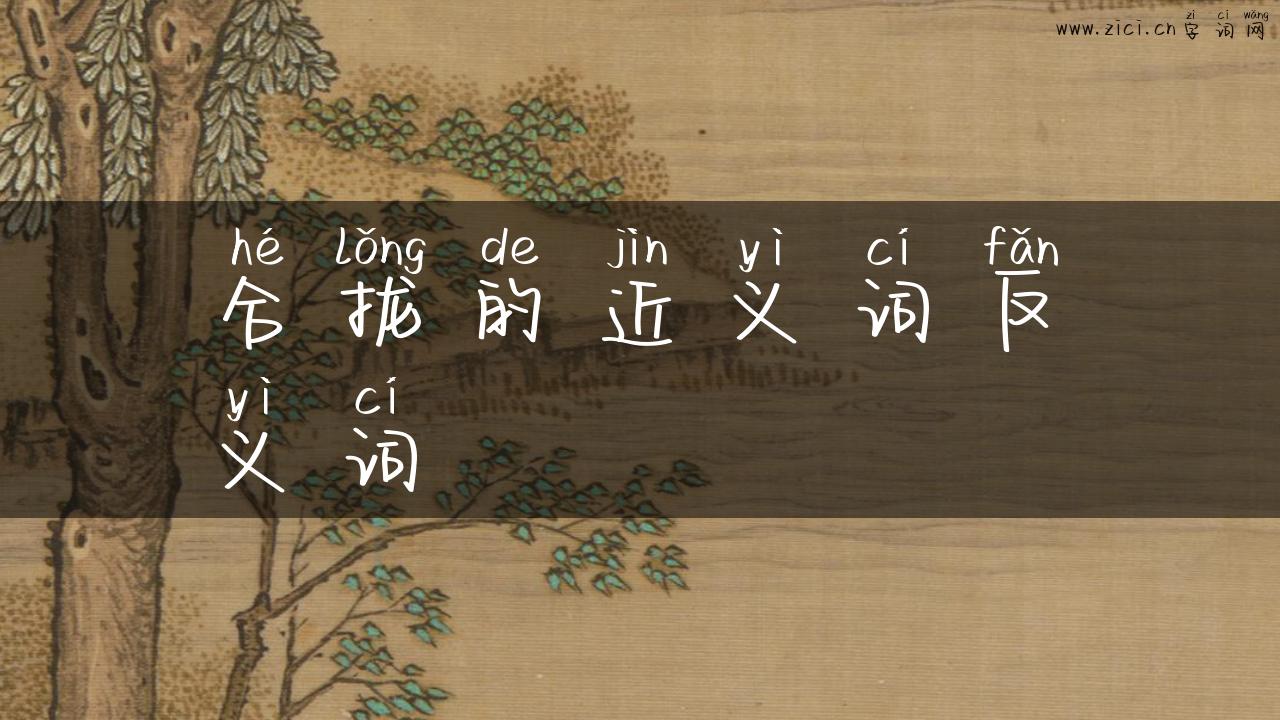 zì cí wǎng
www.zici.cn 字词网
hé lǒng de jìn yì cí fǎn
合拢的近义词反
yì cí
义词